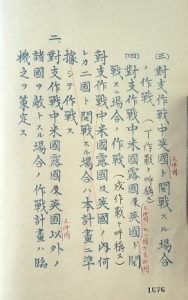 (三) 對支作戰中英國ト開戰スル場合
ノ作戰(丁作戰ト呼稱ス)
(四) 對支作戰中米國露國及英國ト開
戰スル場合ノ作戰(戊作戰ト呼稱ス)
對支作戰中米國露國及英國ノ內何
トカ二國ト開戰スル場合ハ本計畫ニ準
據シテ作戰ス
二、對支作戰中米國露國及英國以外ノ
諸國ヲ敵トスル場合ノ作戰計畫ハ臨
機之ヲ策定ス
1676